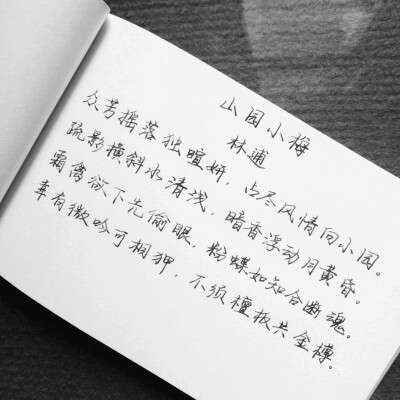 山园小梅
林逋
众芳摇落独暄妍，占尽风情向小园。
疏影横斜水清浅，暗香浮动月黄昏。
霜禽欲下先偷眼，粉蝶如知合断魂。
幸有微吟可相狎，不须檀板共金樽。